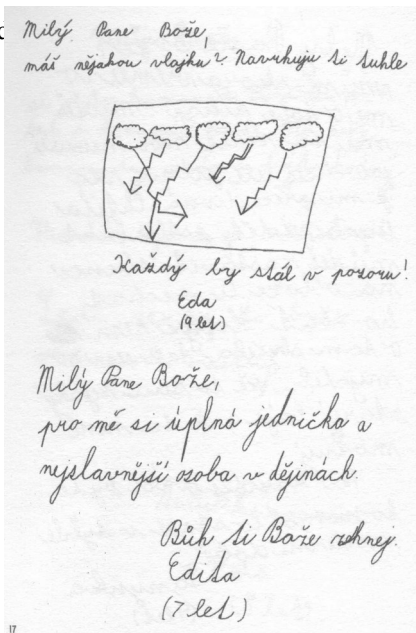 Milý Pane Bože,
máš nějakou vlajku? Navrhuju ti tuhle
Každý by stál v pozoru!
Eda
(9 let)
Milý Pane Bože,
pro mě si úplná jednička a
nejslavnější osoba v dějinách.
Bůh ti Bože žehnej.
Edita
(7 let)
17